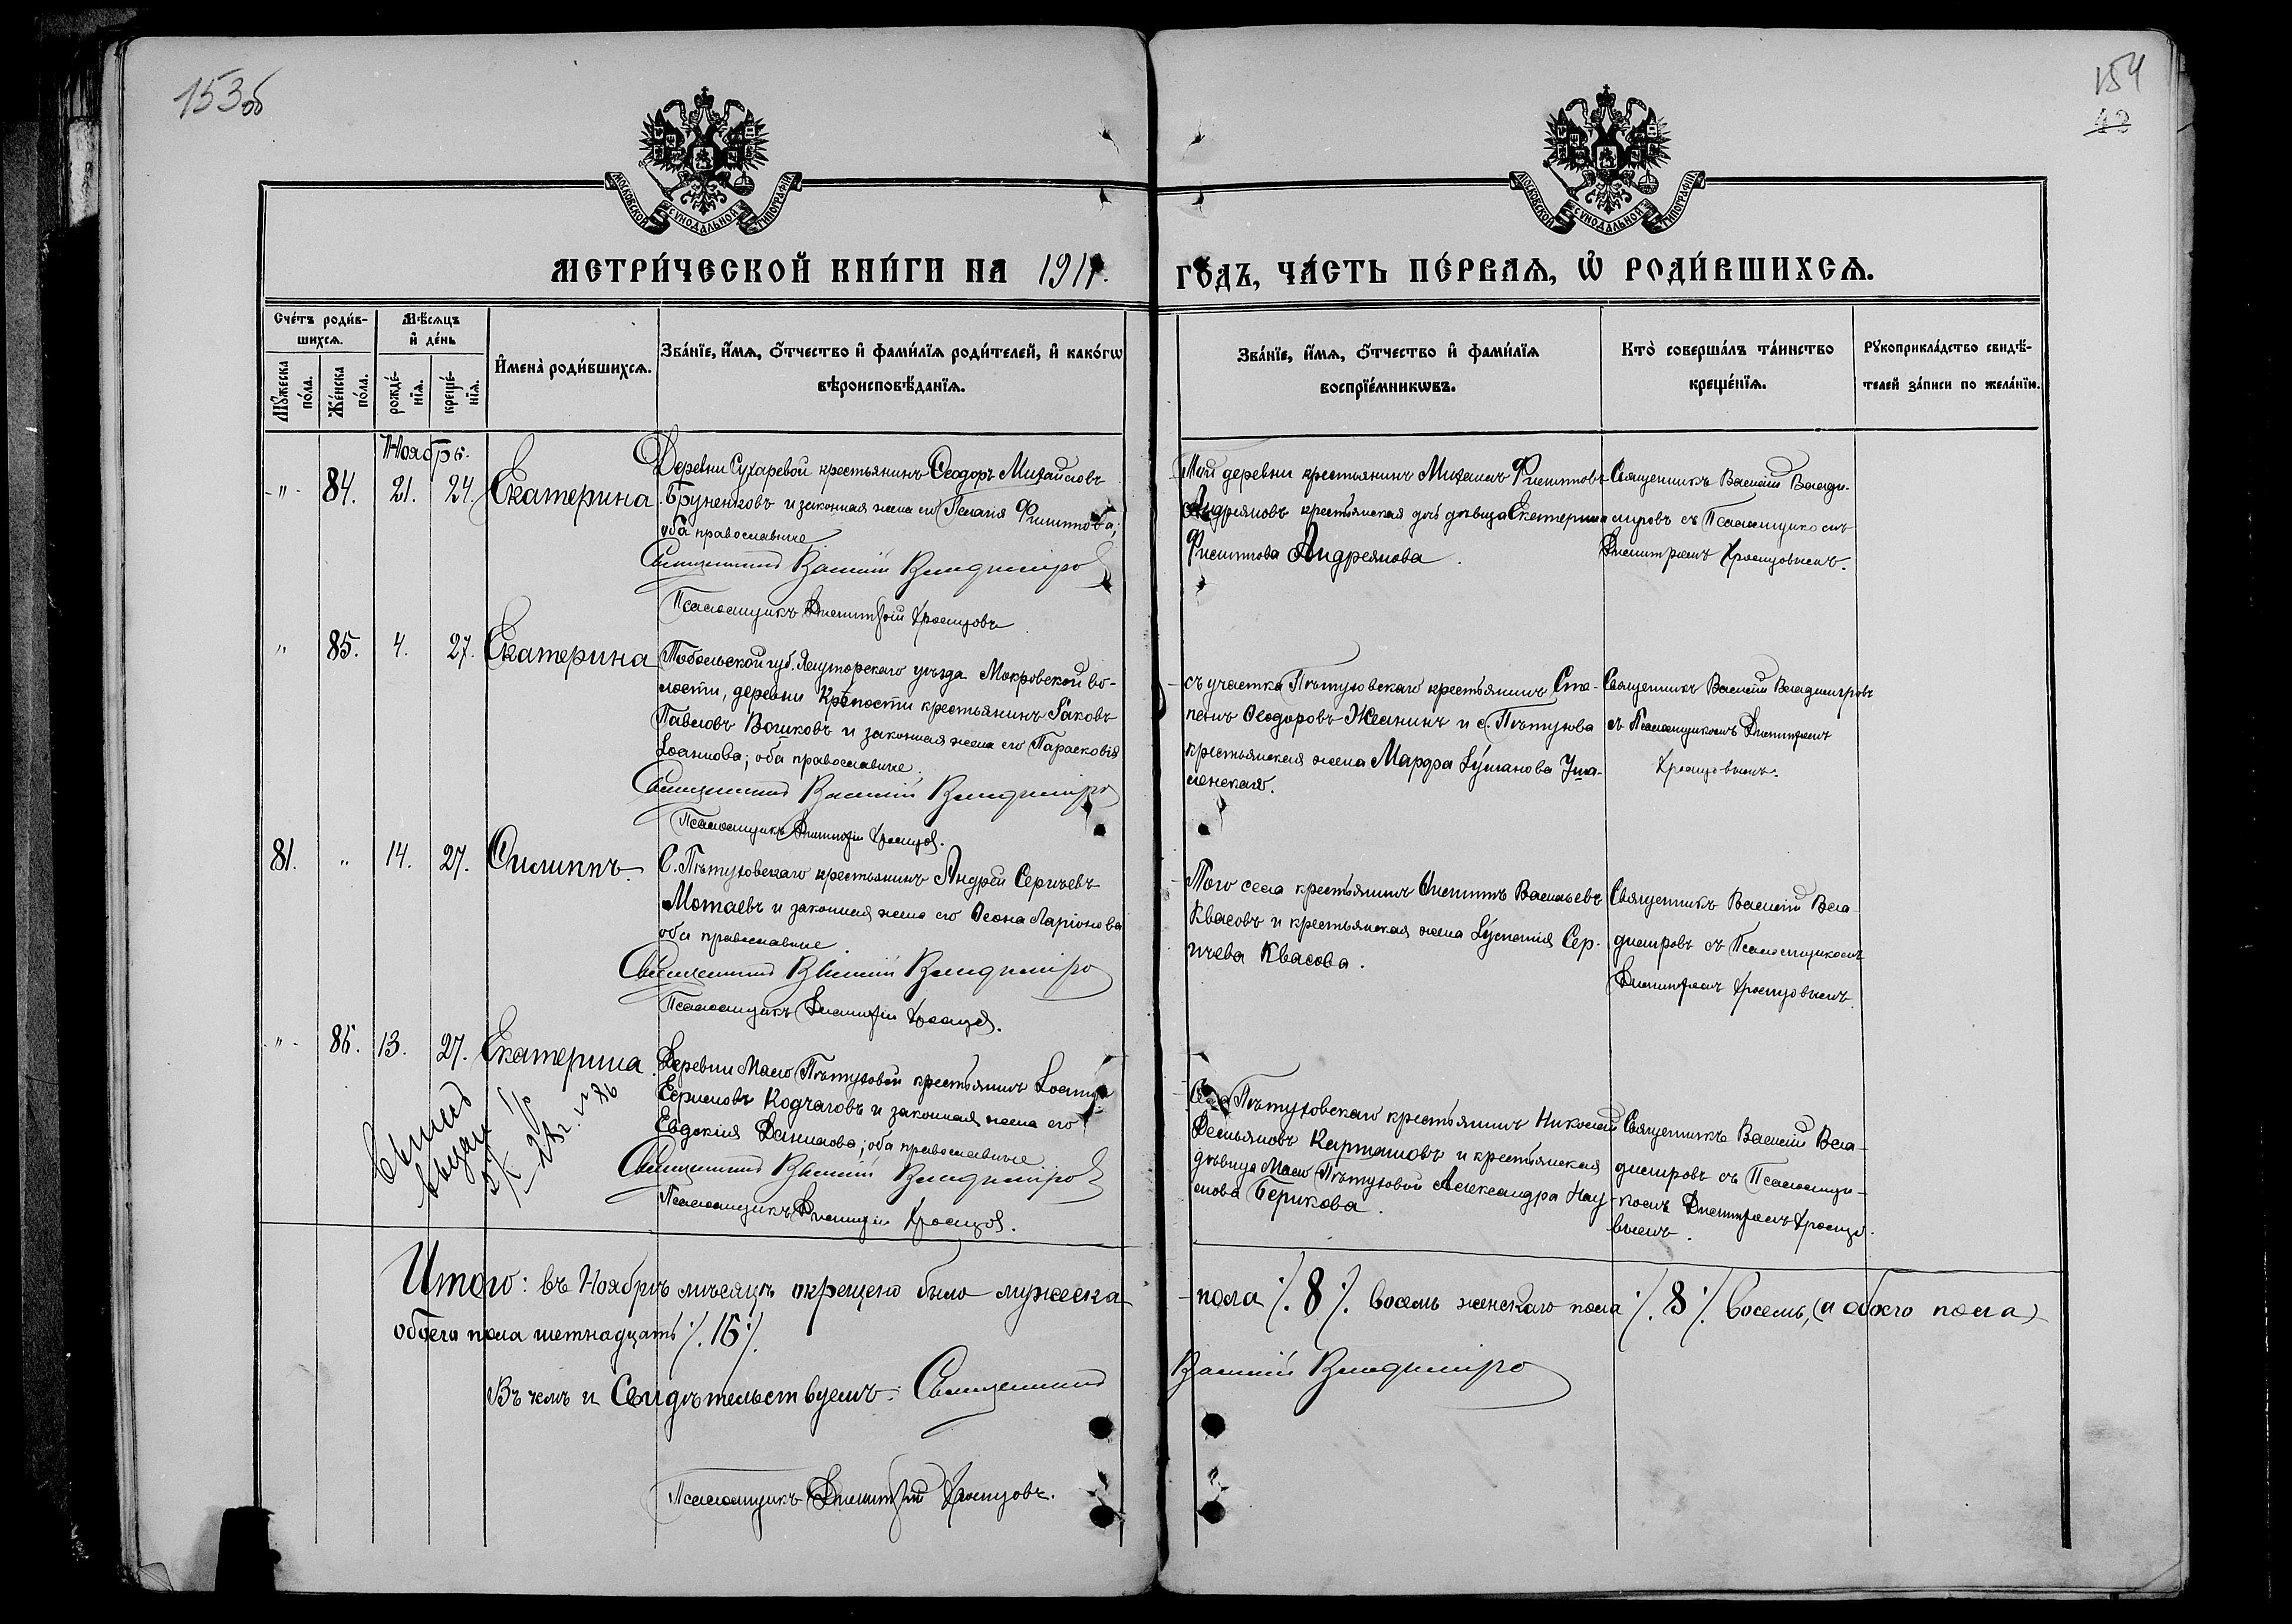 153об
154
42
МОСКОВСКОЙ СѴНОДАЛЬНОЙ ТИПОГРАФІИ
МОСКОВСКОЙ СѴНОДАЛЬНОЙ ТИПОГРАФІИ
МЕТРИ́ЧЕСКОЙ КНИ́ГИ НА 1917.
ГО́ДЪ, ЧА́СТЬ ПЕ́РВАѦ, Ѡ҆ РОДИ́ВШИХСѦ.
Сче́тъ роди́в-
шихсѧ.
Мꙋ́жеска по́ла.
Же́нска по́ла.
Мѣ́сѧцъ
и҆ де́нь
рожде́-
нїѧ.
креще́-
нїѧ.
И҆мена̀ роди́вшихсѧ.
Зва́нїе, и҆́мѧ, ѻ҆́тчество и҆ фами́лїѧ роди́телей, и҆ како́гѡ
вѣроисповѣ́данїѧ.
Зва́нїе, и҆́мѧ, ѻ҆́тчество и҆ фами́лїѧ
воспрїе́мникѡвъ.
Кто̀ соверша́лъ та́инство
креще́нїѧ.
Рꙋкоприкла́дство свидѣ́-
телей за́писи по жела́нїю.
Ноября.
-"- 84. 21. 24. Екатерина
Деревни Сухаревой крестьянинъ Ѳеодоръ Михайловъ
Бруненковъ и законная жена его Пелагія Филиппова;
оба православные.
Священникъ Василій Владиміро
Псаломщикъ Димитрій Хромцовъ
Той деревни крестьянинъ Михаилъ Филипповъ
Андреяновъ крестьянская дочь дѣвица Екатерина
Филиппова Андреянова.
Священникъ Василій Влади-
міровъ съ Псаломщикомъ
Димитріемъ Хромцовымъ.
" 85. 4. 27. Екатерина
Тобольской губ. Ялуторскаго уѣзда Мокровской во-
лости, деревни Крѣпости крестьянинъ Іаковъ
Павловъ Вошковъ и законная жена его Парасковія
Іоаннова; оба православные.
Священникъ Василій Владиміро
Псаломщикъ Димитрій Хромцов.
съ участка Пѣтуховскаго крестьянинъ Сте-
панъ Ѳеодоровъ Жванинъ и с. Пѣтухова
крестьянская жена Марфа
Священникъ Василій Владиміровъ
съ Псаломщикомъ Димитріемъ
Хромцовымъ.
81. " 14. 27. Филиппъ.
С. Пѣтуховскаго крестьянинъ Андрей Сергіевъ
Мотаевъ и законная жена его Ѳеона Ларіонова
оба православные.
Священникъ Василій Владиміро
Псаломщикъ Димитрій Хромцов.
Того села крестьянинъ Филиппъ Васильевъ
Квасовъ и крестьянская жена Сер-
гіева Квасова.
Священникъ Василій Вла-
диміровъ съ Псаломщикомъ
Димитріемъ Хромцовымъ.
-"- 86. 13. 27. Екатерина.
Деревни Мало Пѣтуховой крестьянинъ Іоаннъ
Ефимовъ Кодчаговъ и законная жена его
Евдокія Данилова; оба православные
Священникъ Василій Владиміро
Псаломщикъ Димитрій Хромцов.
Села Пѣтуховскаго крестьянинъ Николай
Демьяновъ Карташовъ и крестьянская
дѣвица Мало Пѣтуховой Александра Нау-
мова Берикова.
Священникъ Василій Вла-
диміровъ съ Псаломщи-
комъ Димитріемъ Хромцо-
вымъ.
28 г. № 86
Итого: въ Ноябрѣ мѣсяцѣ окрещено было мужеска
пола ⁒ 8 ⁒ восемь женскаго пола ⁒ 8 ⁒ восемь, (а обоего пола)
обоего пола шетнадцать ⁒ 16 ⁒
Въ чемъ и Свидѣтельствуемъ: Священникъ
Василій Владиміро
Псаломщикъ Димитрій Хромцовъ.